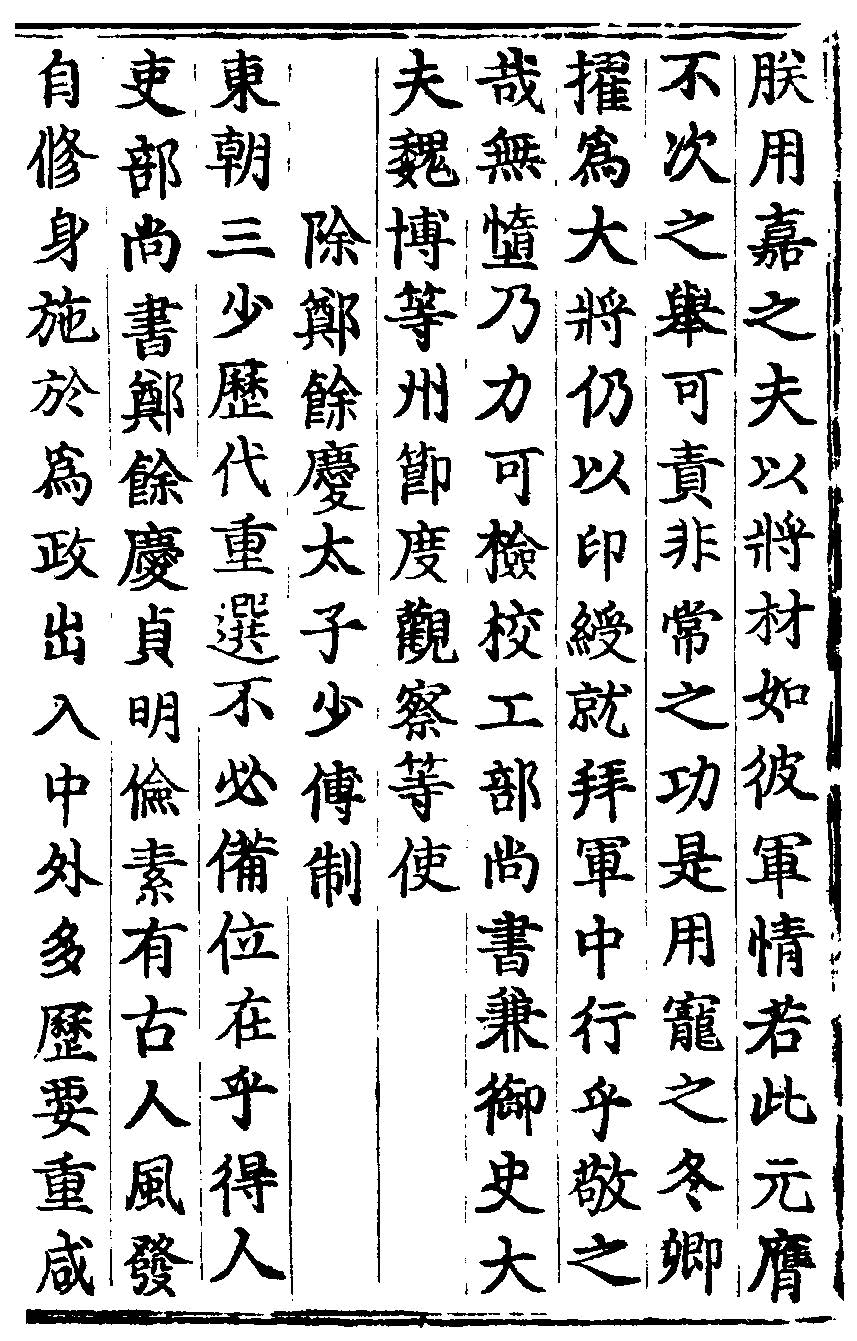 朕用嘉之夫以將材如彼軍情若此元膺
不次之舉可責非常之功是用寵之冬卿
擢為大將仍以印綬就拜軍中行乎敬之
哉無墯乃力可檢校工部尚書兼御史大
夫魏博等州節度觀察等使
除鄭餘慶太子少傅制
東朝三少歷代重選不必備位在乎得人
吏部尚書鄭餘慶貞明儉素有古人風發
自修身施於為政出入中外多歷要重咸